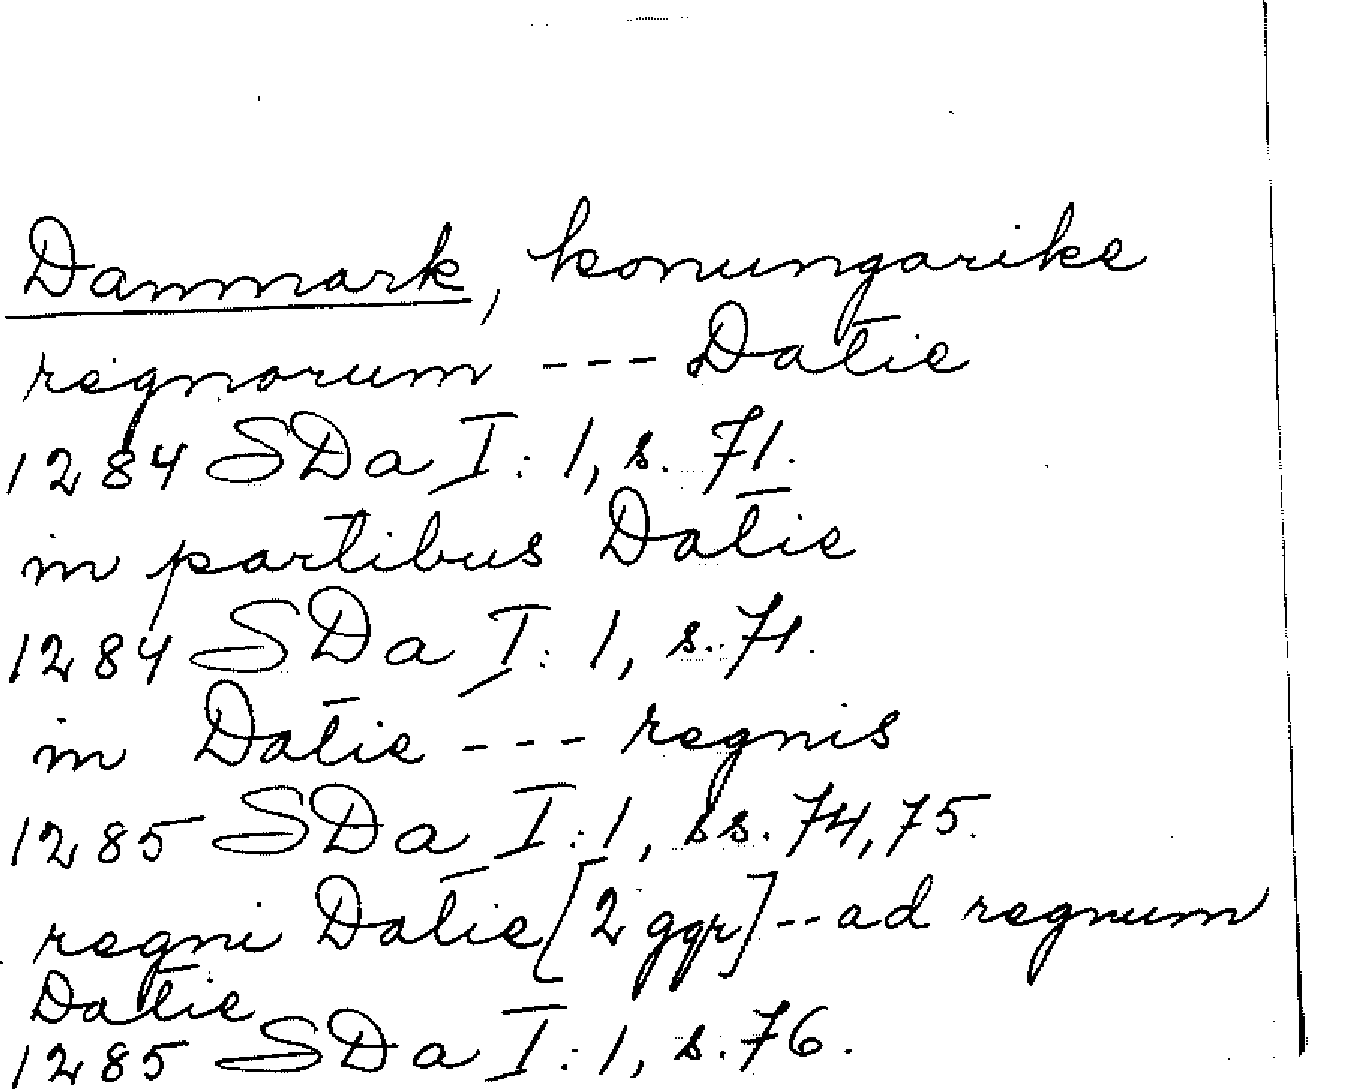 Danmark, konungarike
regnorum --- Datie
1284 SDa I:1, s. 71.
in partibus Datie
1284 SDa I:1, s. 71.
in Datie --- regnis
1285 SDa I:1, ss. 74, 75.
regni Datie [2 ggr] -- ad regnum
Datie
1285 SDa I:1, s. 76.